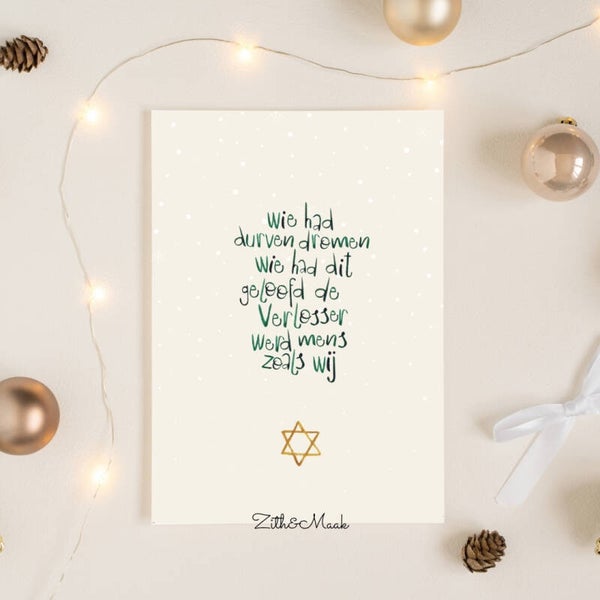 wie had
durven dromen
wie had dit
geloofd de
Verlosser
werd mens
zoals wij
Zith&Maak